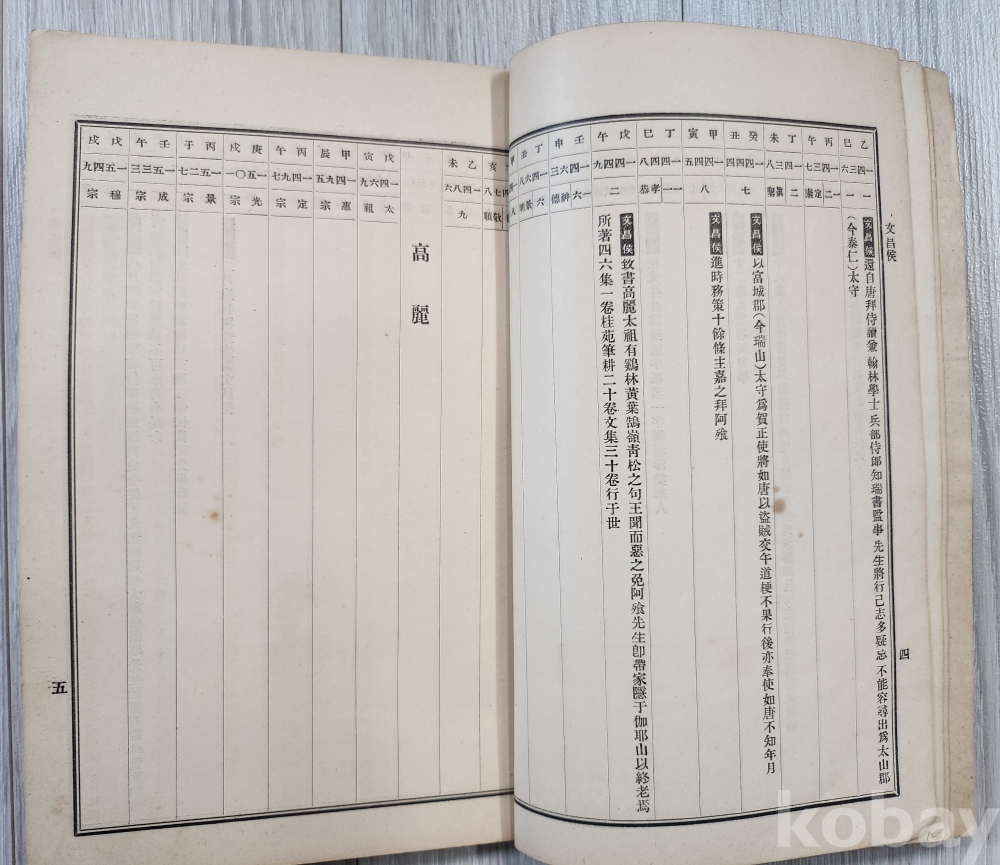 文昌侯
四
巳 一四三六 一一
文昌侯 還自唐拜侍讀兼翰林學士兵部侍郎知瑞書監事先生將行己志多疑忌不能容尋出爲太山郡
(今泰仁)太守
丙午 一四三七 定康 二
丁未 一四三八 眞聖 二
癸丑 一四四四 七
文昌侯 以富城郡(今瑞山)太守爲賀正使將如唐以盜賊交午道梗不果行後亦奉使如唐不知年月
甲寅 一四四五 八
文昌侯 進時務策十餘條主嘉之拜阿飡
丁巳 一四四八 孝恭 一一
戊午 一四四九 二
文昌侯 致書高麗太祖有鷄林黃葉鵠嶺靑松之句王聞而惡之免阿飡先生卽帶家隱于伽耶山以終老焉
所著四六集一卷桂苑筆耕二十卷文集三十卷行于世
壬申 一四六三 神德 一六
丁丑 一四六八 景明 六
甲
亥 敬順
乙未 一四八六 九
高麗
戊寅 一四六九 太祖
甲辰 一四九五 惠宗
丙午 一四九七 定宗
庚戌 一五〇 光宗
丙子 一五二七 景宗
壬午 一五三三 成宗
戊戌 一五四九 穆宗
五
kobay